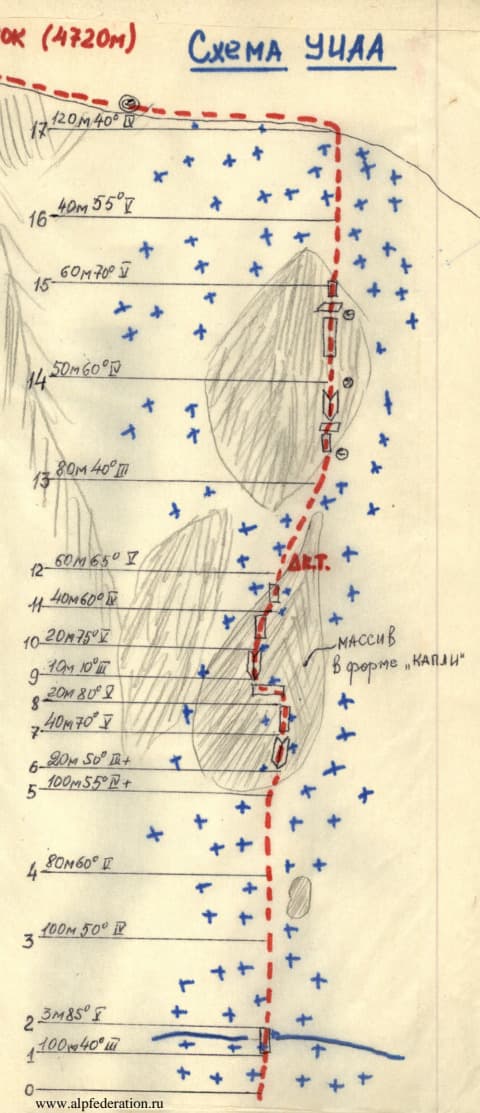 ок (4720м) Схема УИАА
17 120м 40° IV
16 40м 55° V
15 60м 70° V
14 50м 60° IV
13 80м 40° III
12 60м 65° V
11 40м 60° IV
10 20м 75° V
массив
в форме „капли“
9 10м 10° III
8 20м 80° V
7 40м 70° V
6 20м 50° III+
5 100м 55° IV+
4 80м 60°
3 100м 50° IV
2 3м 85° V
1 100м 40° III
0
www.alpfederation.ru